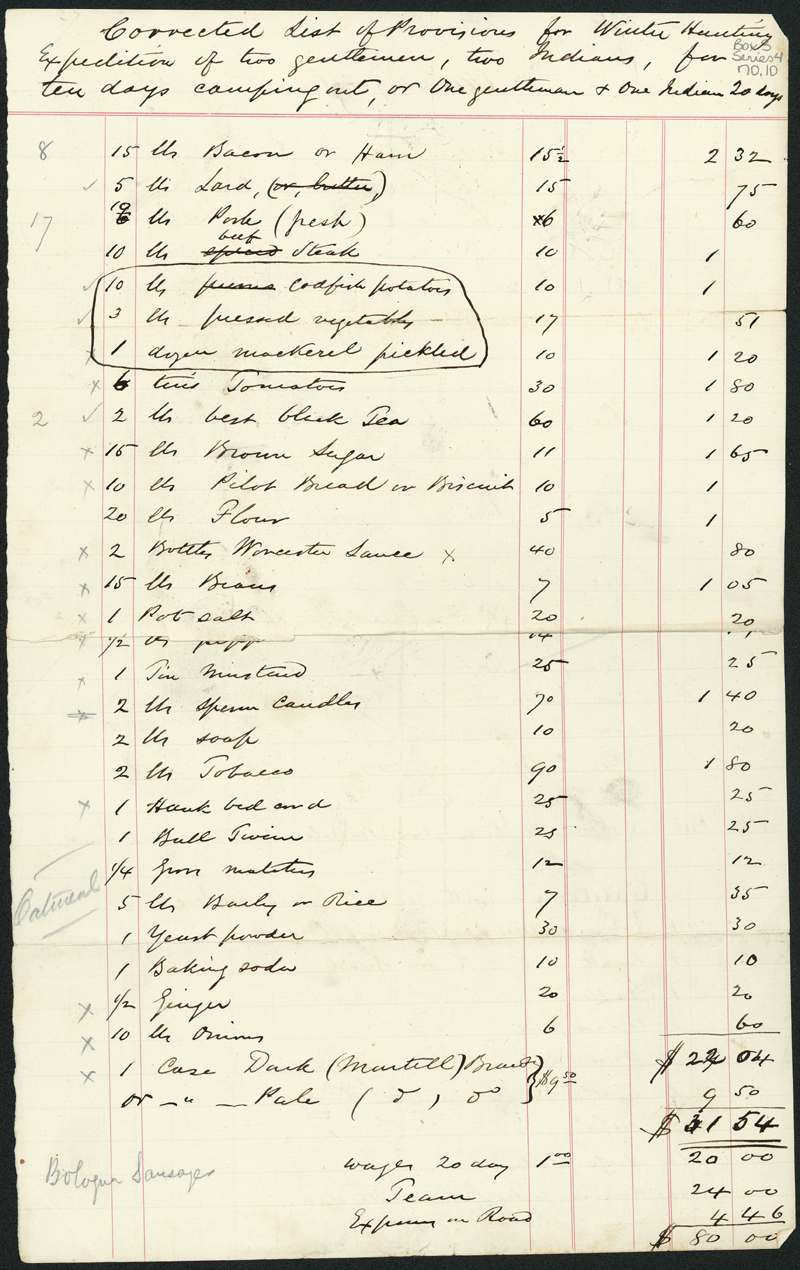 Corrected List of Provisions for Winter Hunting
Expedition of two gentlemen, two Indians, for
ten days camping out, or One gentleman & One Indian 20 days
Box 5
Series 4
no. 10
8 15 lbs Bacon or Ham 15½ 2 32
✓ 5 lbs Lard, (or, butter,) 15 75
17 10 6 lbs Pork (fresh) 6 60
10 lbs beef spiced Steak 10 1
✓ 10 lbs codfish potatoes 10 1
✓ 3 lbs pressed vegetables 17 51
x 1 dozen mackerel pickled 10 1 20
x 6 tins Tomatoes 30 1 80
2 ✓ 2 lbs best black Tea 60 1 20
x 15 lbs Brown Sugar 11 1 65
x 10 lbs Pilot Bread or Biscuit 10 1
20 lbs Flour 5 1
x 2 Bottles Worcester Sauce x 40 80
x 15 lbs Beans 7 1 05
x 1 Pot salt 20 20
x 1/2 lbs
x 1 Tin Mustard 25 25
x 2 lbs sperm Candles 70 1 40
2 lbs soap 10 20
2 lbs Tobacco 90 1 80
x 1 Hank bed cord 25 25
1 Ball Twine 25 25
1/4 Gross matches 12 12
Oatmeal
5 lbs Barley or Rice 7 35
1 Yeast powder 30 30
1 Baking soda 10 10
x 1/2 Ginger 20 20
x 10 lbs Onions 6 60
$ 22 04
x 1 Case Dark (Martell) Brandy } $9 50
or — " — Pale ( do ) do 9 50
$ 31 54
Bologna Sausages
wages 20 day 1 00 20 00
Team 24 00
Expenses on Road 4 46
$ 80 00